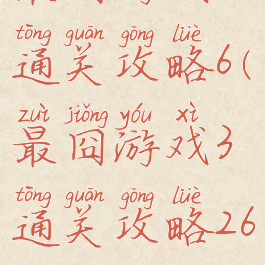 tōng guān gōng lüè
通关攻略6(
zuì jiǒng yóu xì
最囧游戏3
tōng guān gōng lüè
通关攻略26